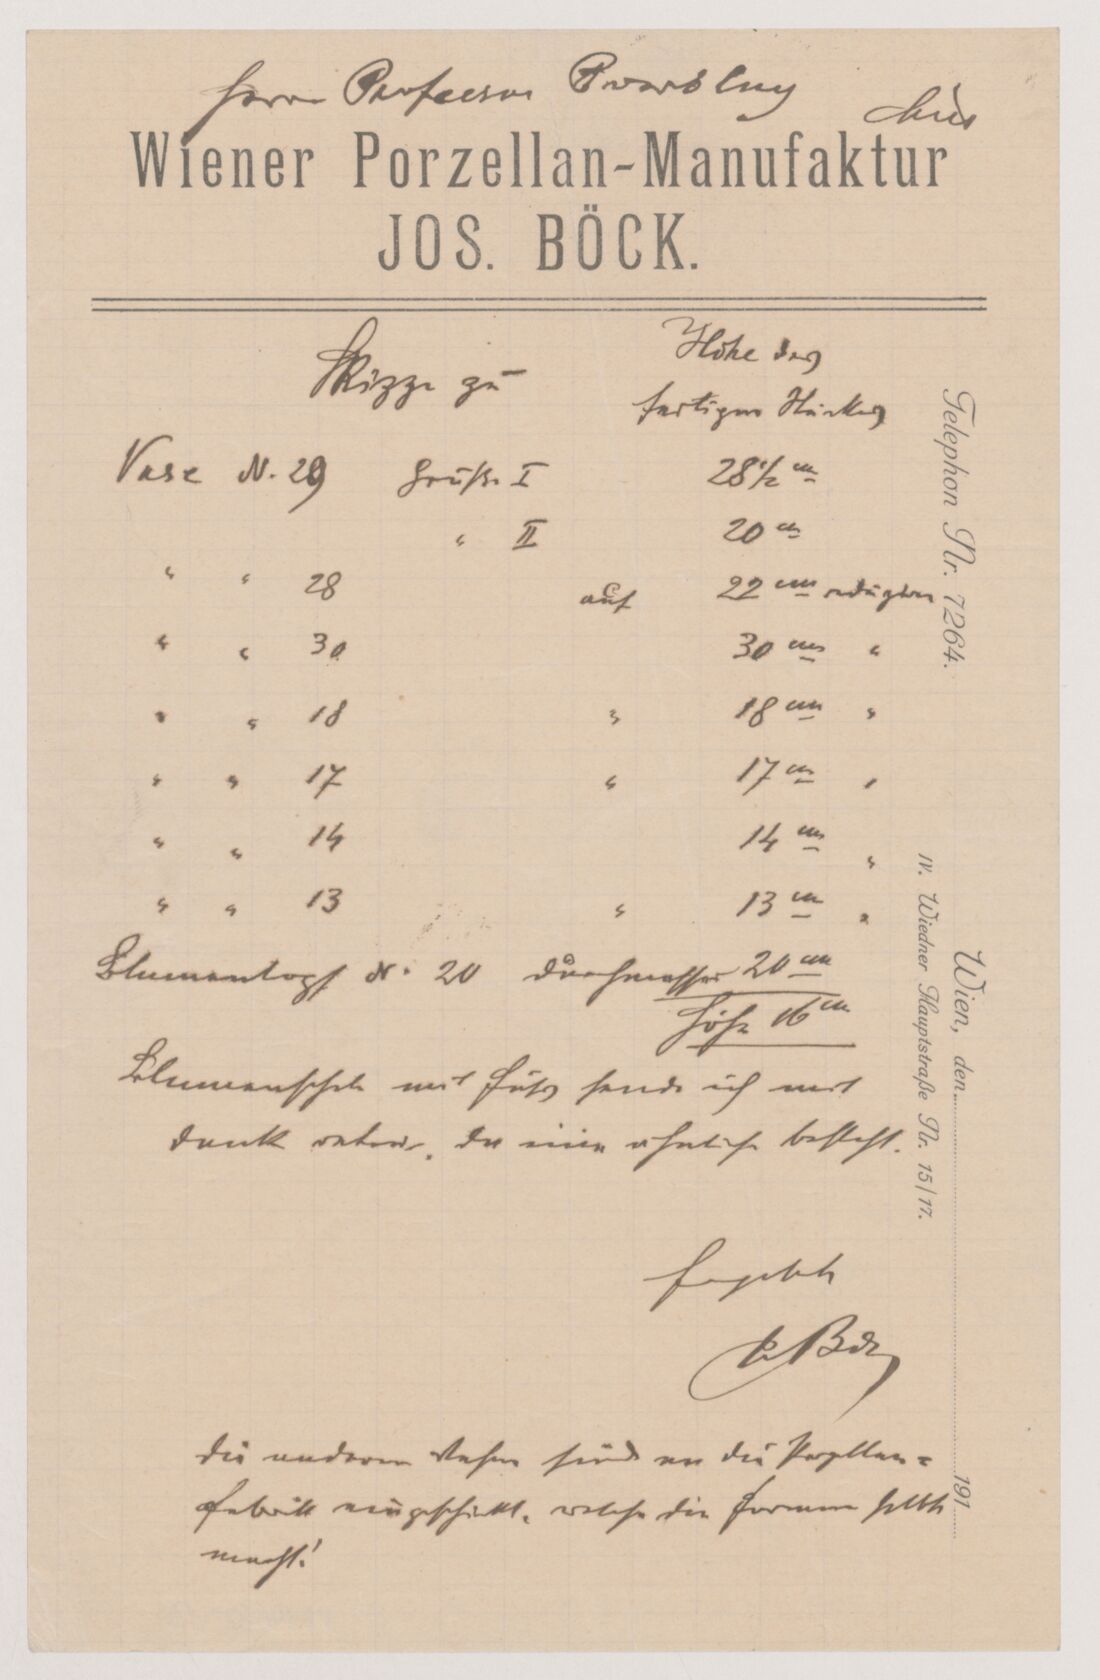 Herrn Professor Powolny
hier
Wiener Porzellan-Manufaktur
JOS. BÖCK.
Skizze zu
Höhe des
fertigen Stückes
Vase N. 29 Größe I 28 1/2 cm
" II 20 cm
" " 28 auf 22 cm reduziren
" " 30 30 cm "
" " 18 " 18 cm "
" " 17 " 17 cm "
" " 14 14 cm "
" " 13 " 13 cm "
Blumentopf N. 20 Durchmesser 20 cm
Höhe 16 cm
Blumenschale mit Fuß sende ich mit
Dank retour, da eine ähnliche besteht.
Ergebenst
Böck
die anderen Vasen sind an die Porzellan=
fabrik eingeschickt, welche die Formen selbst
macht!
Telephon Nr. 7264.
IV. Wiedner Hauptstraße Nr. 15/17.
Wien, den 191